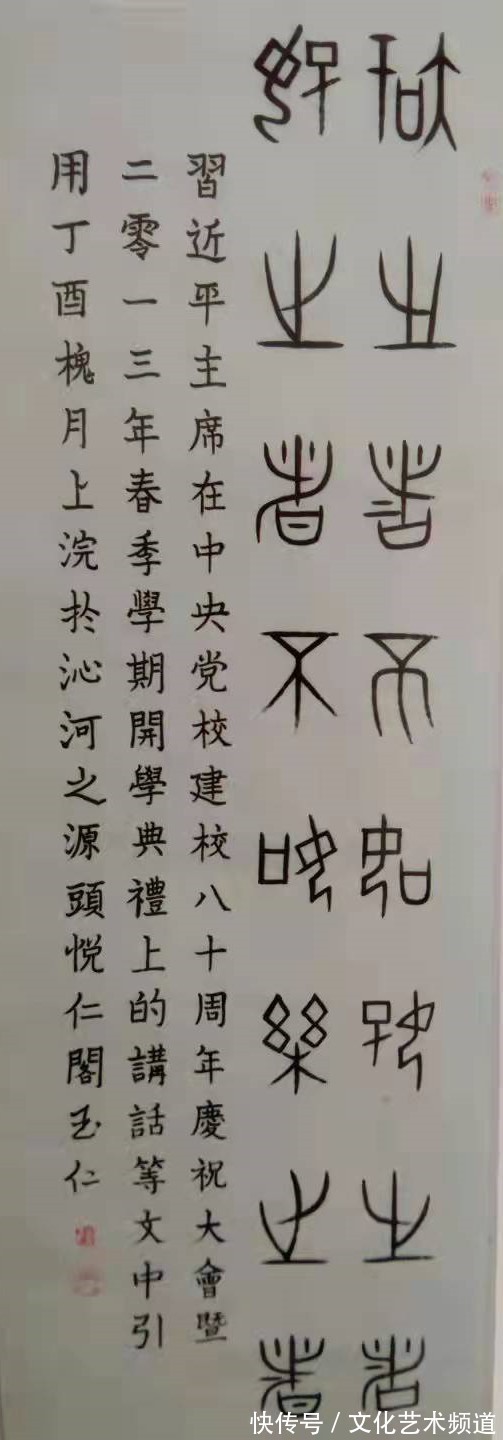 知之者不如好之者
好之者不如樂之者
習近平主席在中央党校建校八十周年慶祝大會暨
二零一三年春季學期開學典禮上的講話等文中引
用丁酉槐月上浣於沁河之源頭悦仁閣玉仁
快传号 / 文化艺术频道